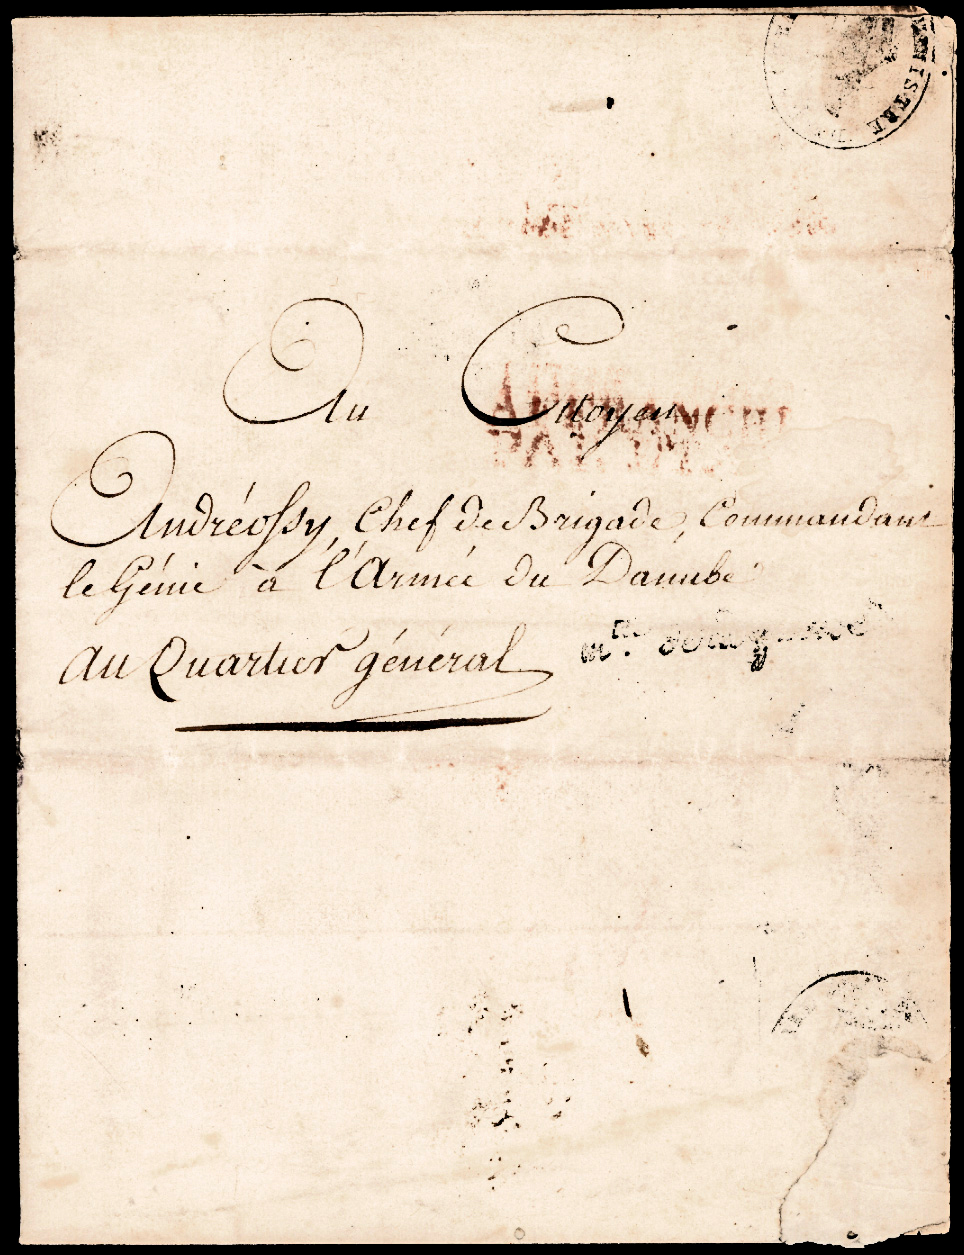 MINISTRE
Au Citoyen
Andréossy, Chef de Brigade, Commandant
le Génie à l'Armée du Danube
au Quartier général